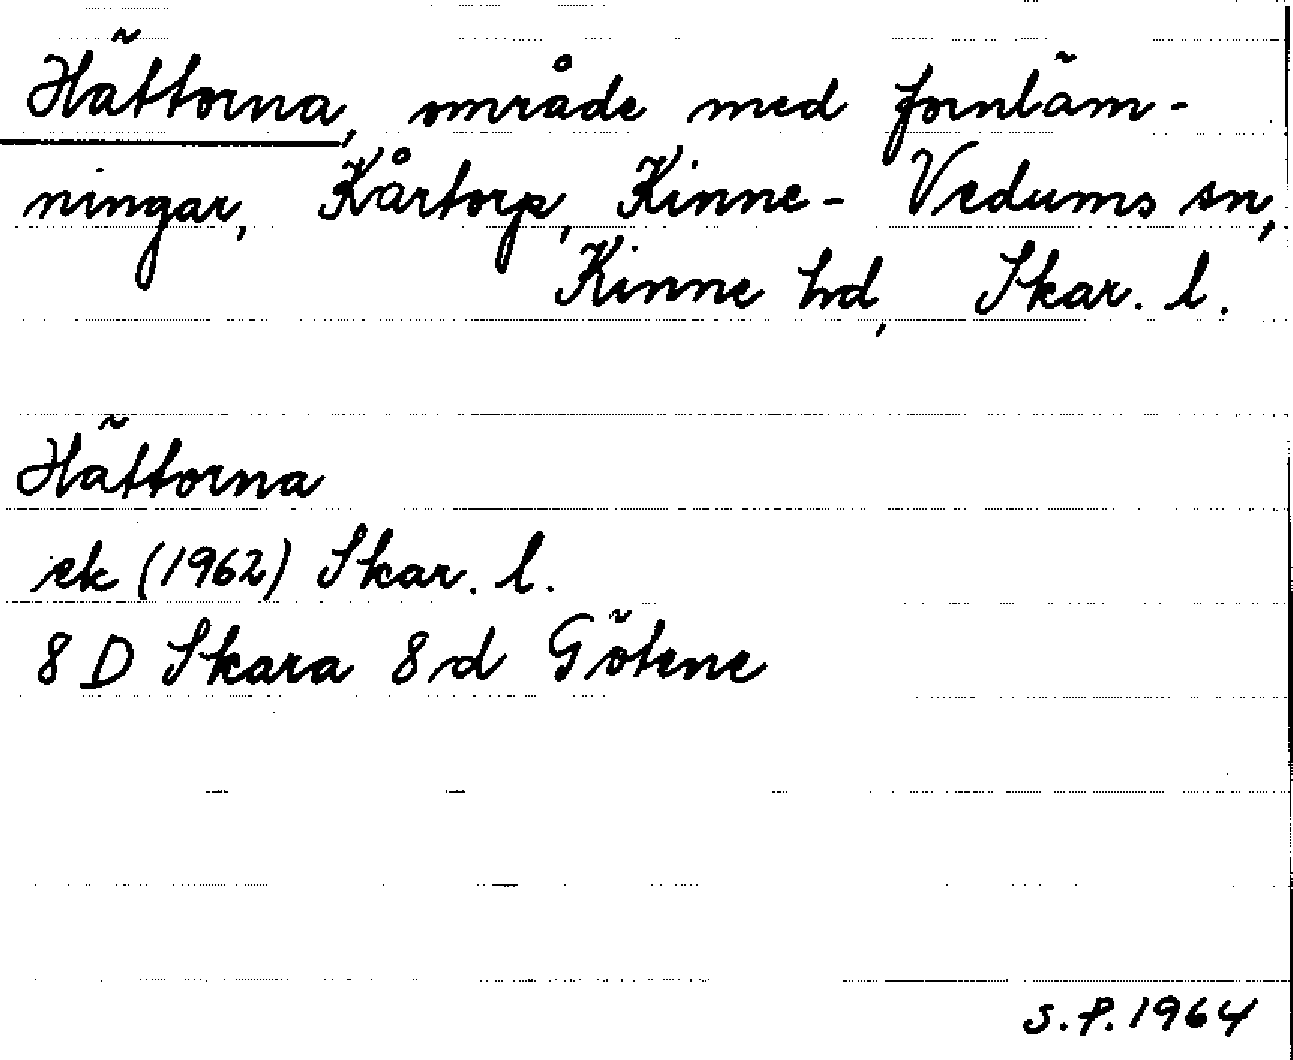 Hättorna, område med fornläm-
ningar, Kårtorp, Kinne-Vedums sn,
Kinne hd, Skar. l.
Hättorna
ek (1962) Skar. l.
8 D Skara 8 d Götene
S.P. 1964